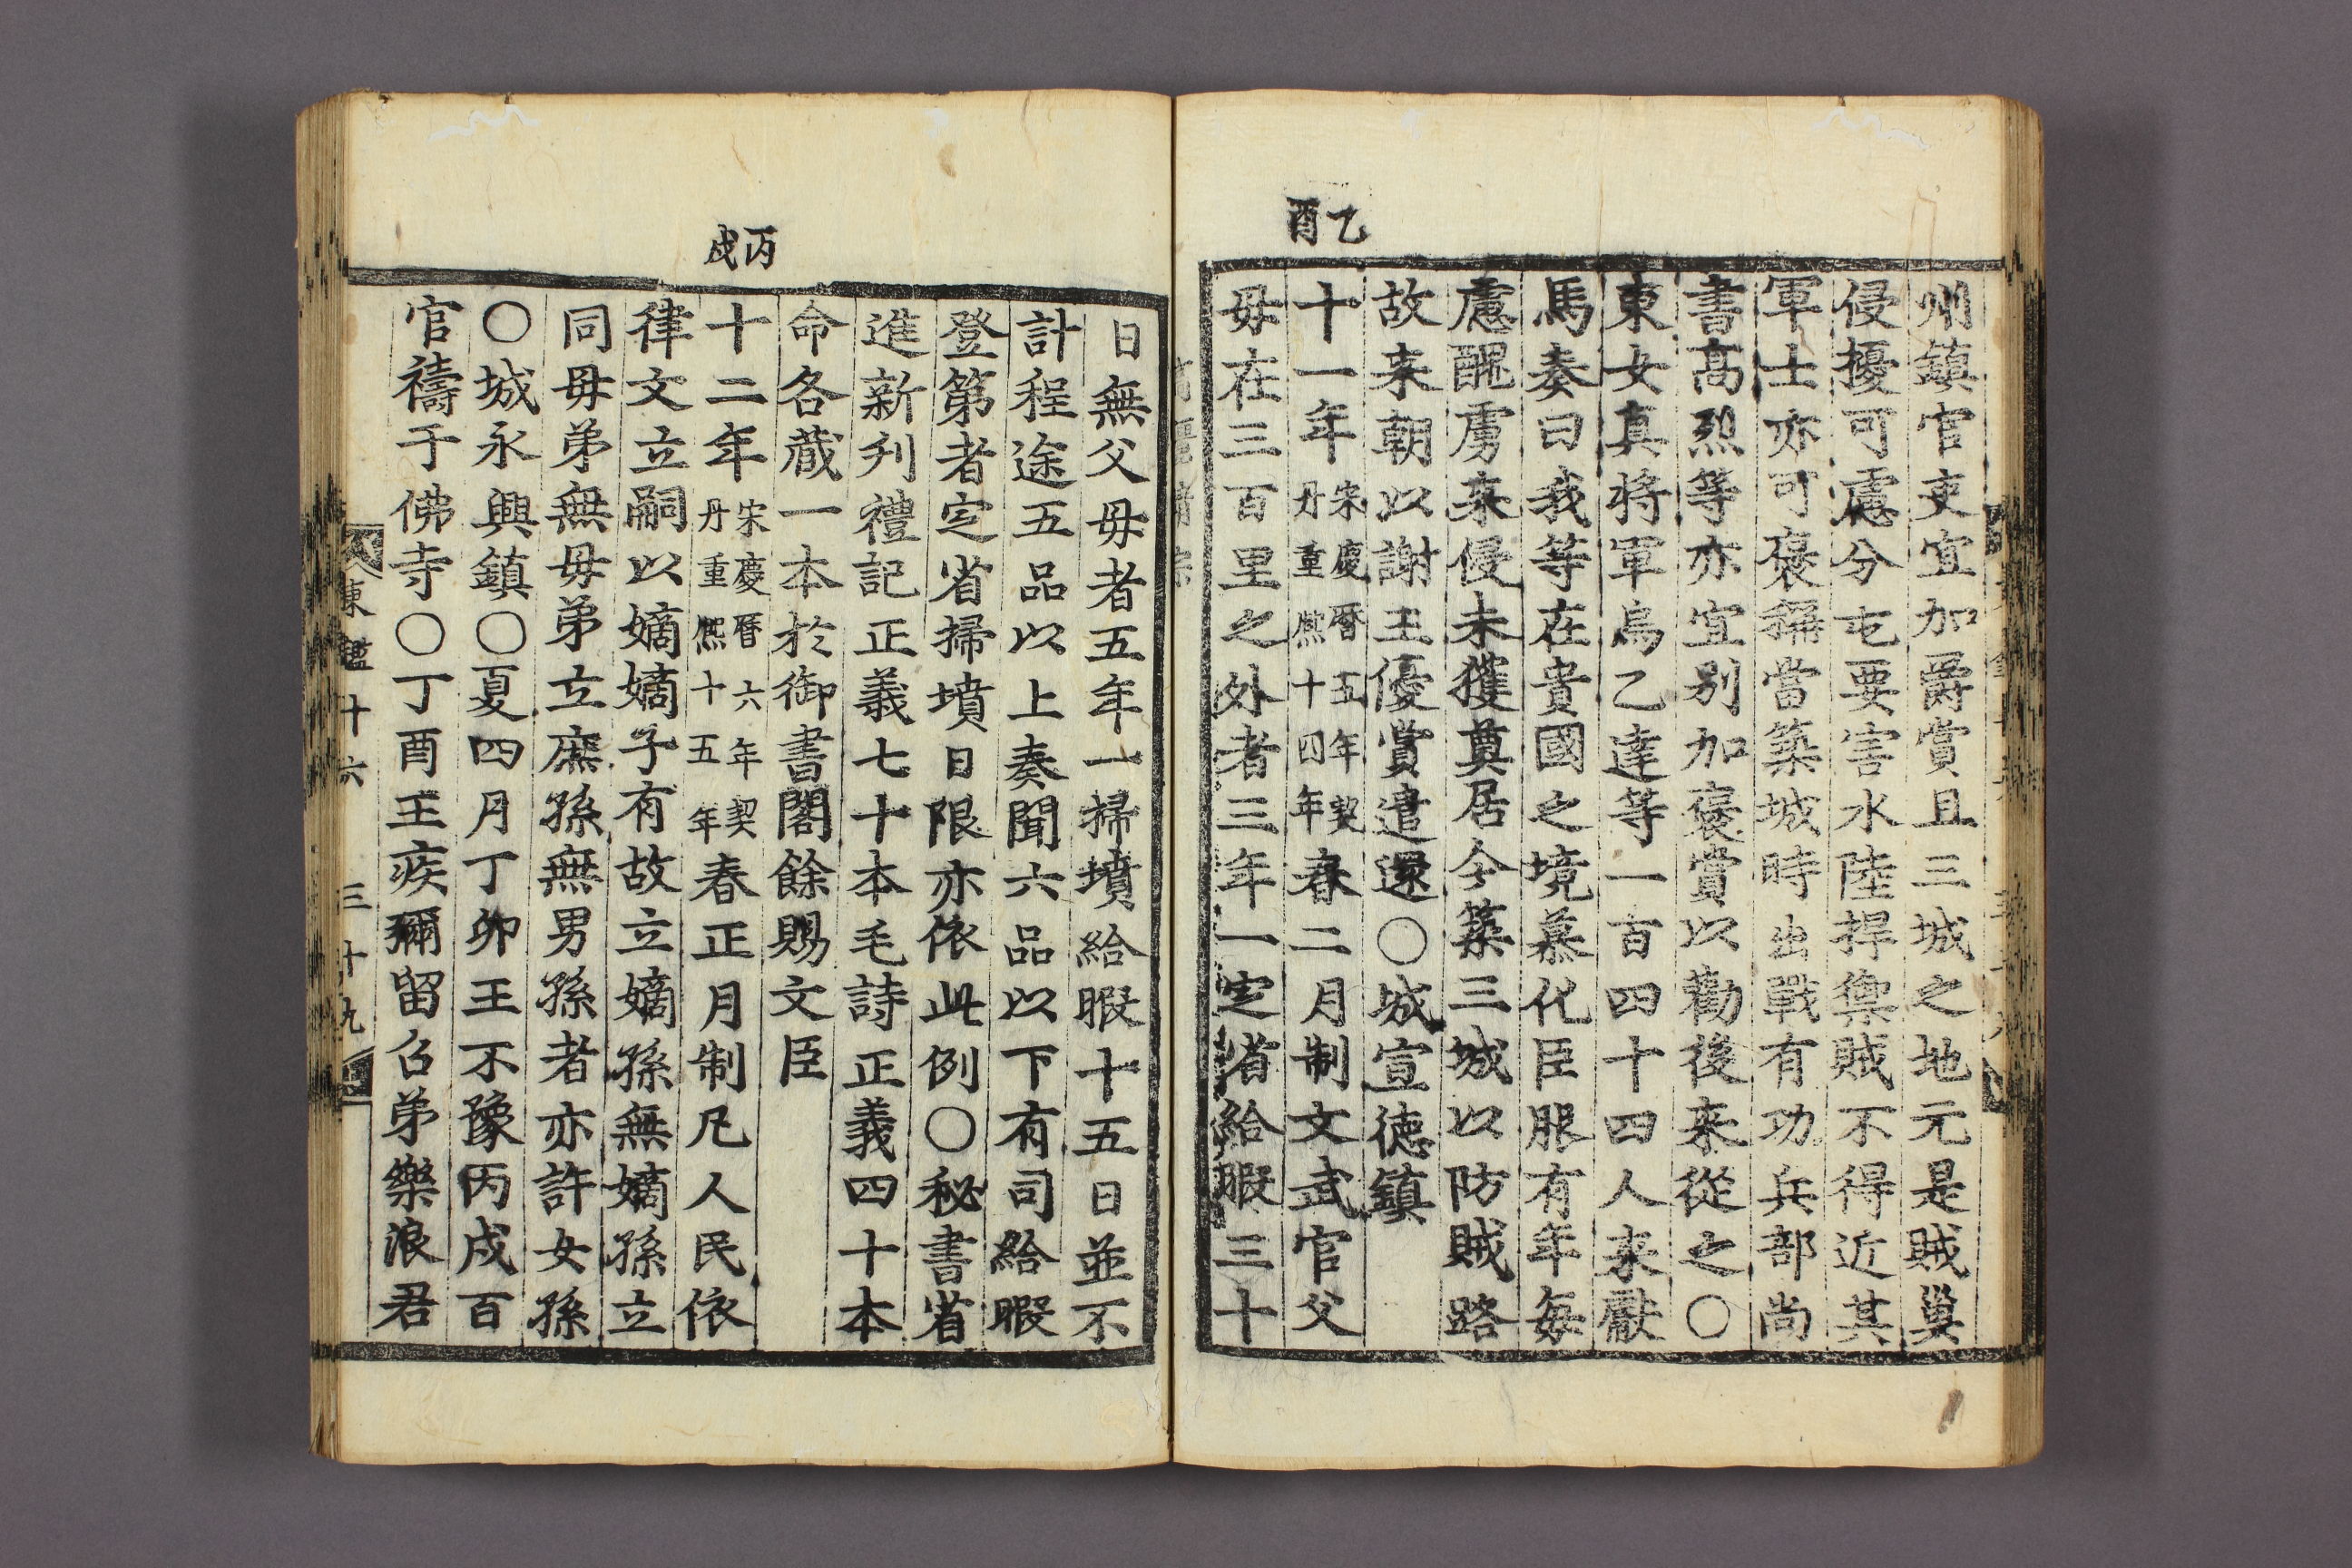 乙酉
州鎮官吏宜加爵賞且三城之地元是賊巢
侵擾可慮分屯要害水陸捍禦賊不得近其
軍士亦可褒稱當築城時出戰有功兵部尚
書高烈等亦宜別加褒賞以勸後来從之○
東女真將軍烏乙達等一百四十四人来獻
馬奏曰我等在貴國之境慕化臣服有年每
慮醜虜来侵未獲奠居今築三城以防賊路
故来朝以謝王優賞遣還○城宣德鎮
十一年宋慶曆五年契丹重熙十四年春二月制文武官父
母在三百里之外者三年一定省給暇三十
丙戌
日無父母者五年一掃墳給暇十五日並不
計程途五品以上奏聞六品以下有司給暇
登第者定省掃墳日限亦依此例○秘書省
進新刋禮記正義七十本毛詩正義四十本
命各蔵一本於御書閣餘賜文臣
十二年宋慶曆六年契丹重熙十五年春正月制凡人民依
律文立嗣以嫡嫡子有故立嫡孫無嫡孫立
同母弟無母弟立庶孫無男孫者亦許女孫
○城永興鎮○夏四月丁卯王不豫丙戌百
官禱于佛寺○丁酉王疾彌留召弟樂浪君
東鑑十六 三十九